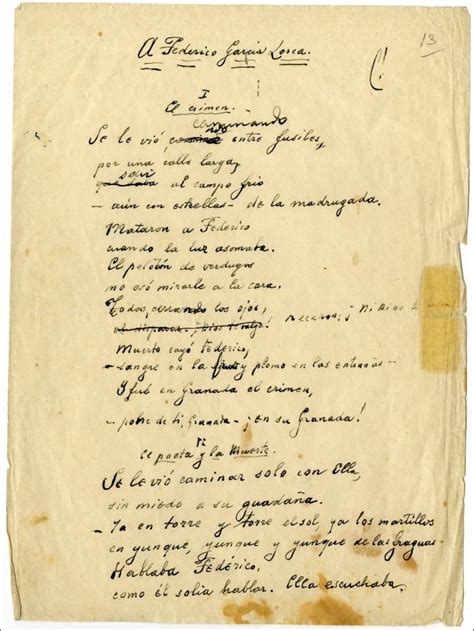 13
A Federico García Lorca.
I
El crimen.
caminando
Se le vió, entre fusiles,
por una calle larga,
salir
al campo frío
– aún con estrellas – de la madrugada.
Mataron a Federico
cuando la luz asomaba.
El pelotón de verdugos
no osó mirarle a la cara.
Todos, cerrando los ojos,
rezaron: ¡Ni Dios
Muerto cayó Federico,
– sangre en la frente y plomo en las entrañas –
Y fué en Granada el crimen,
– pobre de ti, Granada – ¡en su Granada!
II
El poeta y la Muerte.
Se le vió caminar solo con Ella,
sin miedo a su guadaña.
– Ya en torre y torre el sol, ya los martillos
en yunque, yunque y yunque de las fraguas –
Hablaba Federico,
como él solía hablar. Ella escuchaba.